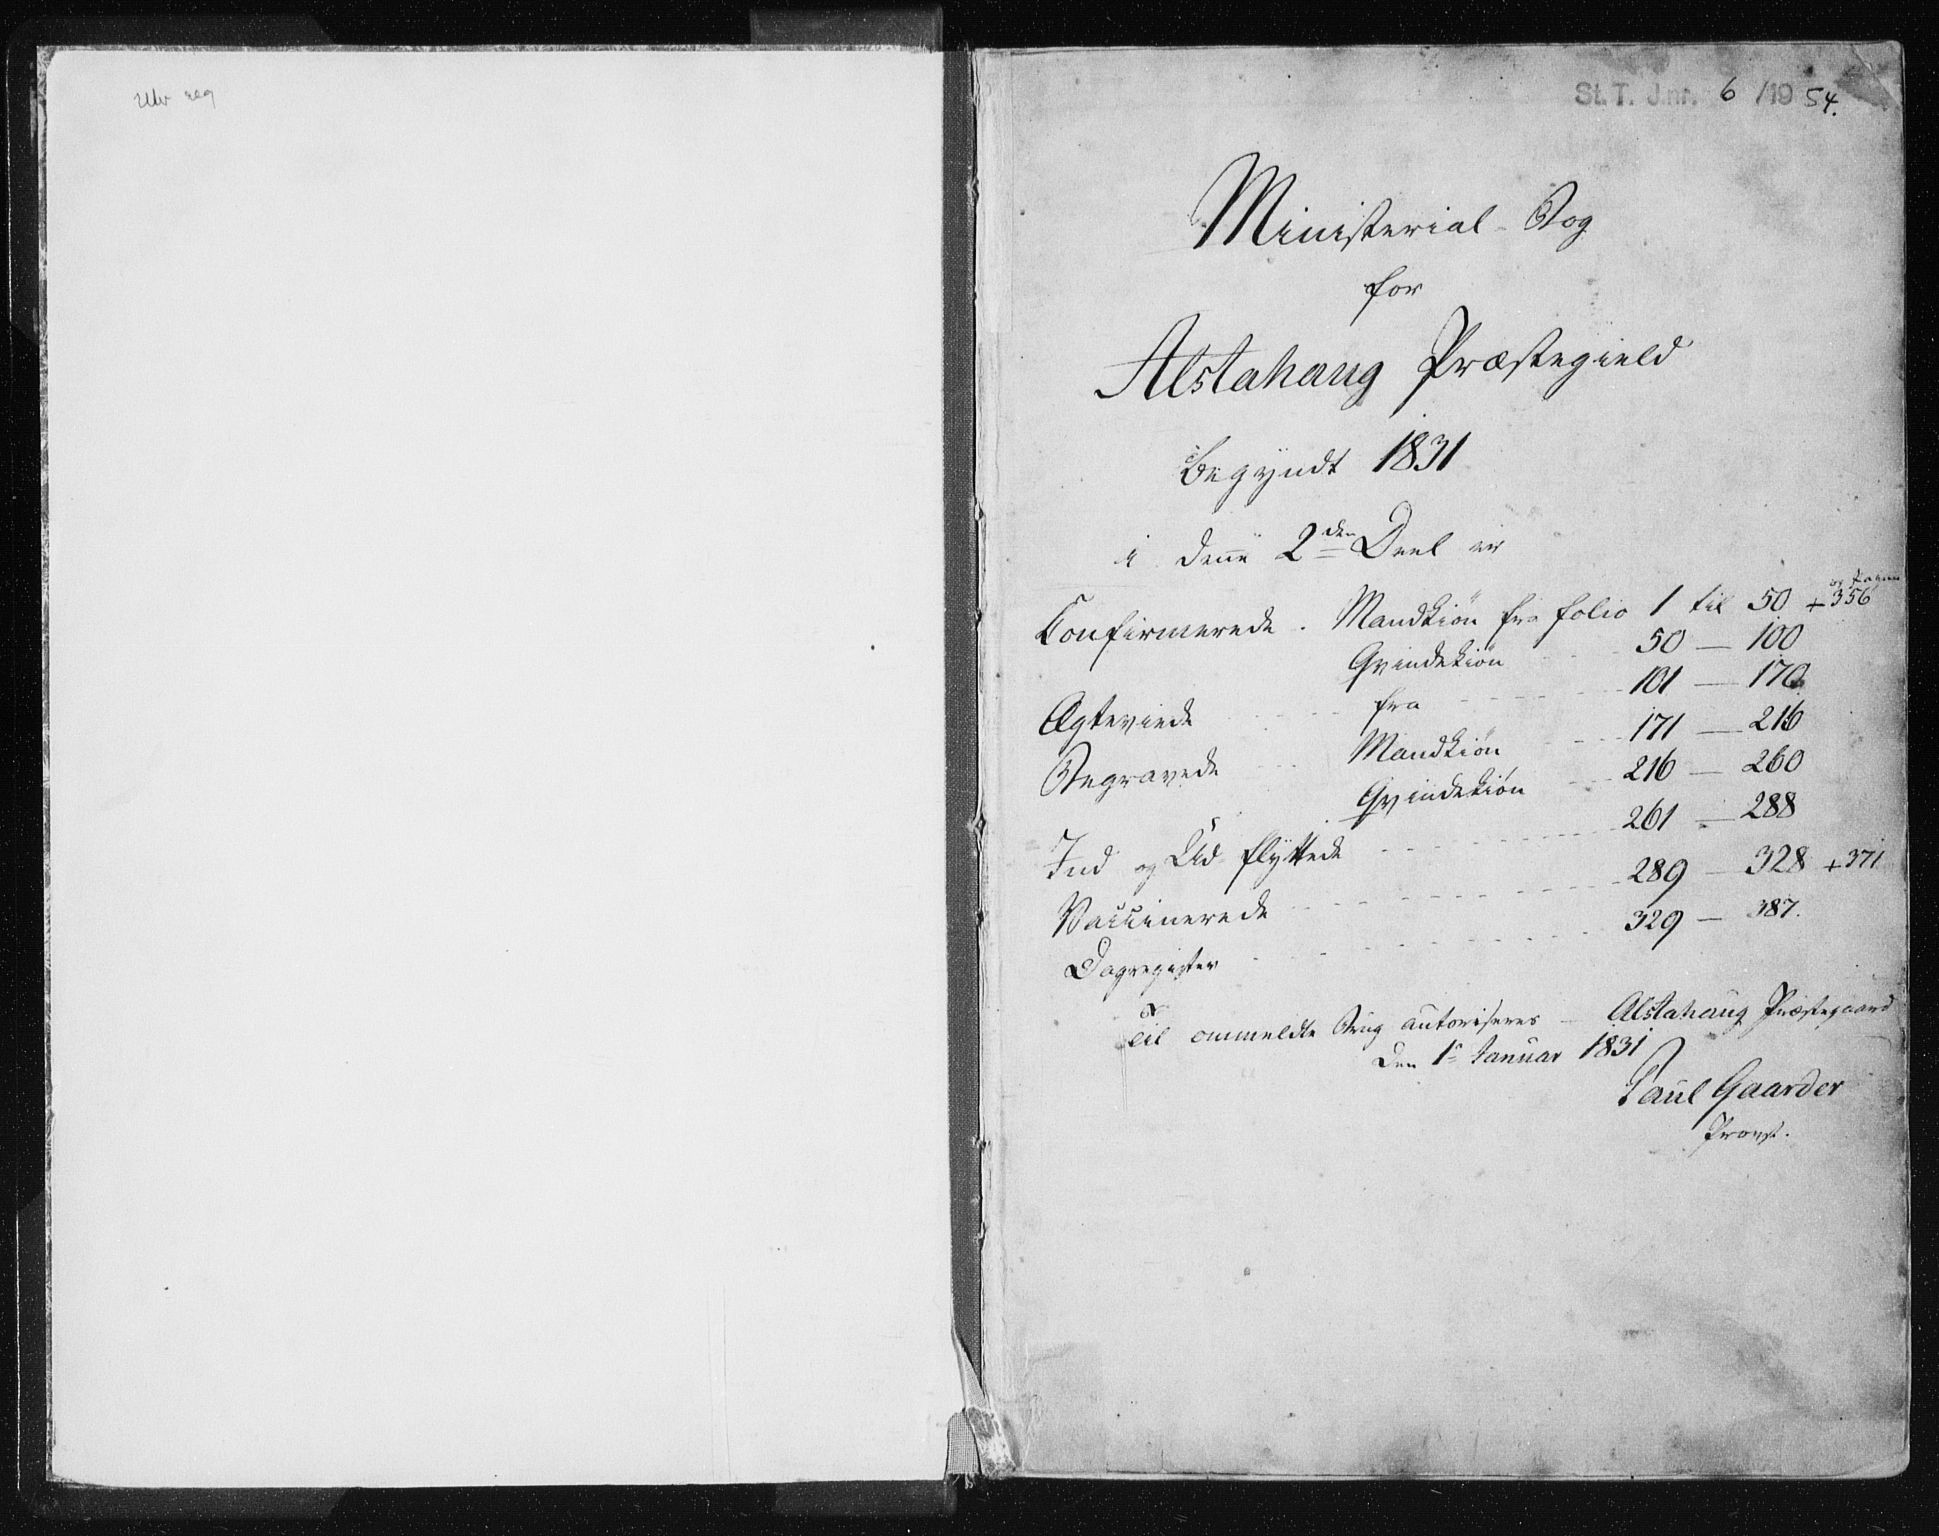 St. T. J.nr. 6 /19 54.
Ministerial-Bog
for
Alstahaug Præstegield
begyndt 1831
i denne 2den Deel er
Confirmerede . Mandkiøn fra folio 1 til 50 + 356
Qvindekiøn 50 — 100
Ægteviede fra 101 — 170
Begravede Mandkiøn 171 — 216
Qvindekiøn 216 — 260
Ind og Ud flyttede 261 — 288
Vaccinerede 289 — 328 + 371
Dagregister 329 — 387.
Til ommeldte Brug autoriseres — Alstahaug Præstegaard
den 1e Januar 1831
Paul Gaarder
Provst.